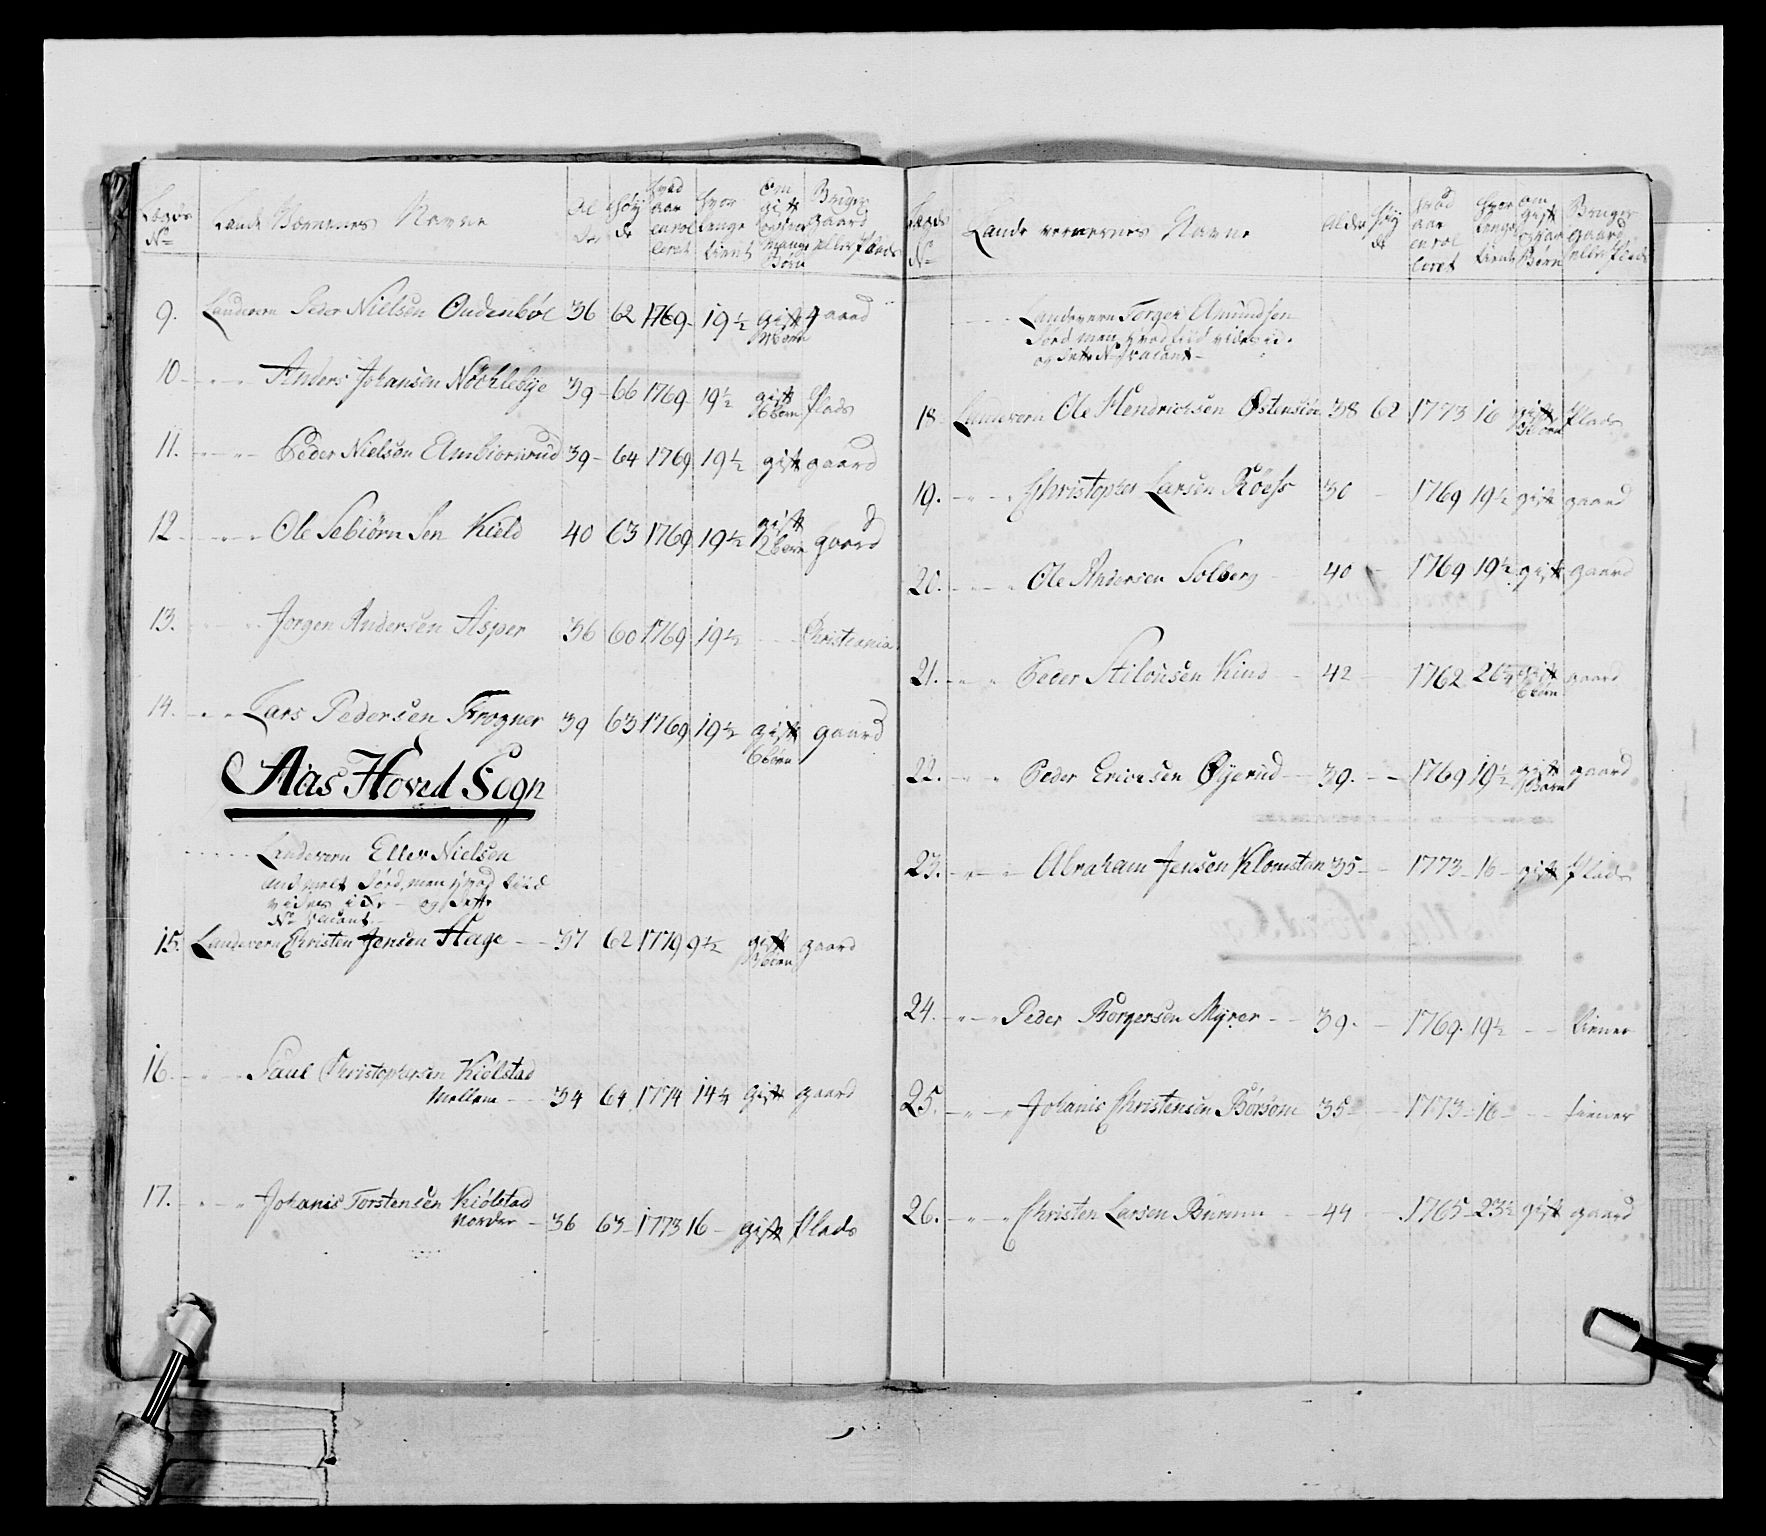 Lægds No Lande Værnernes Navne Alder Høyde hvad aar enrolleret hvor lenge tient Om gift og mange Børn Bruger gaard eller Plads
9. Landevern Peder Nielsen Oudenbøl 36 62 1769 19½ gift Børn gaard
10 Anders Johansen Nøchlebye 39 66 1769 19½ gift Børn Plads
11. Peder Nielsen Ambiornrud 39 64 1769 19½ gift gaard
12 Ole Sebiørnsen Kield 40 63 1769 19½ gift 2 børn gaard
13. Jorgen Andersen Asper 36 60 1769 19½ Christiania
14. Lars Pedersen Frogner 39 63 1769 19½ gift 6 børn gaard
Aas Hoved Sogn
Landevern Eller Nielsen
død, men hvad tiid
vides
No vacant
15. Landevern Christen Jensen Hage 37 62 1779 9½ gift børn gaard
16 Paul Christophersen Kiølstad
Mellem 34 64 1774 14½ gift gaard
17. Johanis Torstensen Kiølstad
Norder 36 63 1773 16 gift Plads
Lægds No Lande vernernes Navne Alder Høyde hvad aar enrolleret hvor lenge tient om gift Børn Bruger gaard eller Plads
Landevern Torger Amundsen
død, men hvad tiid vides
og dette No vacant
18 Landevern Ole Hendrichsen Østensiøe 38 62 1773 16 gift Børn Plads
19. Christopher Larsen Røess 30 1769 19½ gift gaard
20. Ole Andersen Solberg 40 1769 19½ gift gaard
21. Peder Stilousen Kind 42 1762 26½ gift børn gaard
22. Peder Ericksen Øyerud 39. 1769 19½ gift Børn gaard
23. Abraham Jensen Klomsten 35 1773 16 gift Plads
24. Peder Borgersen Myrer 39. 1769. 19½ tiener
25. Johanis Christensen Børsom 35 1773 16 tiener
26. Christen Larsen Burum 44 1765 23½ gift gaard